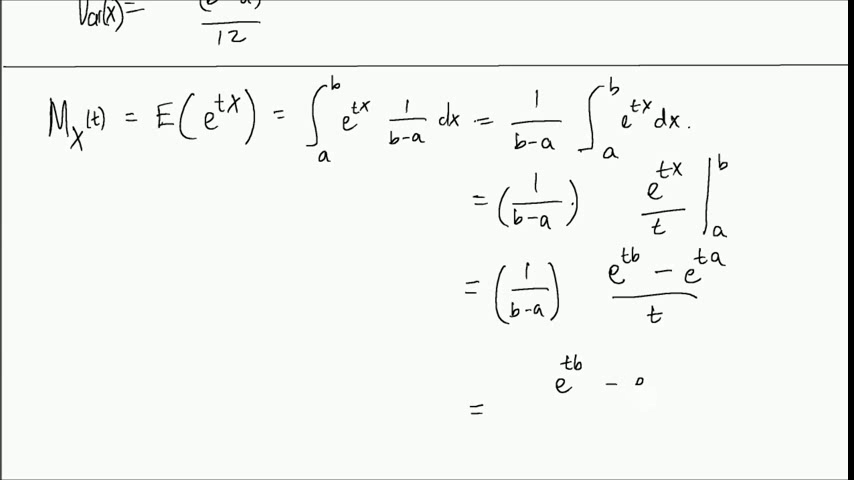 Var(x) = (b-a)² / 12
M_X(t) = E(e^{tX}) = ∫_a^b e^{tx} 1/(b-a) dx = 1/(b-a) ∫_a^b e^{tx} dx.
= (1/(b-a)) · e^{tx}/t |_a^b
= (1/(b-a)) (e^{tb} - e^{ta})/t
= e^{tb} -